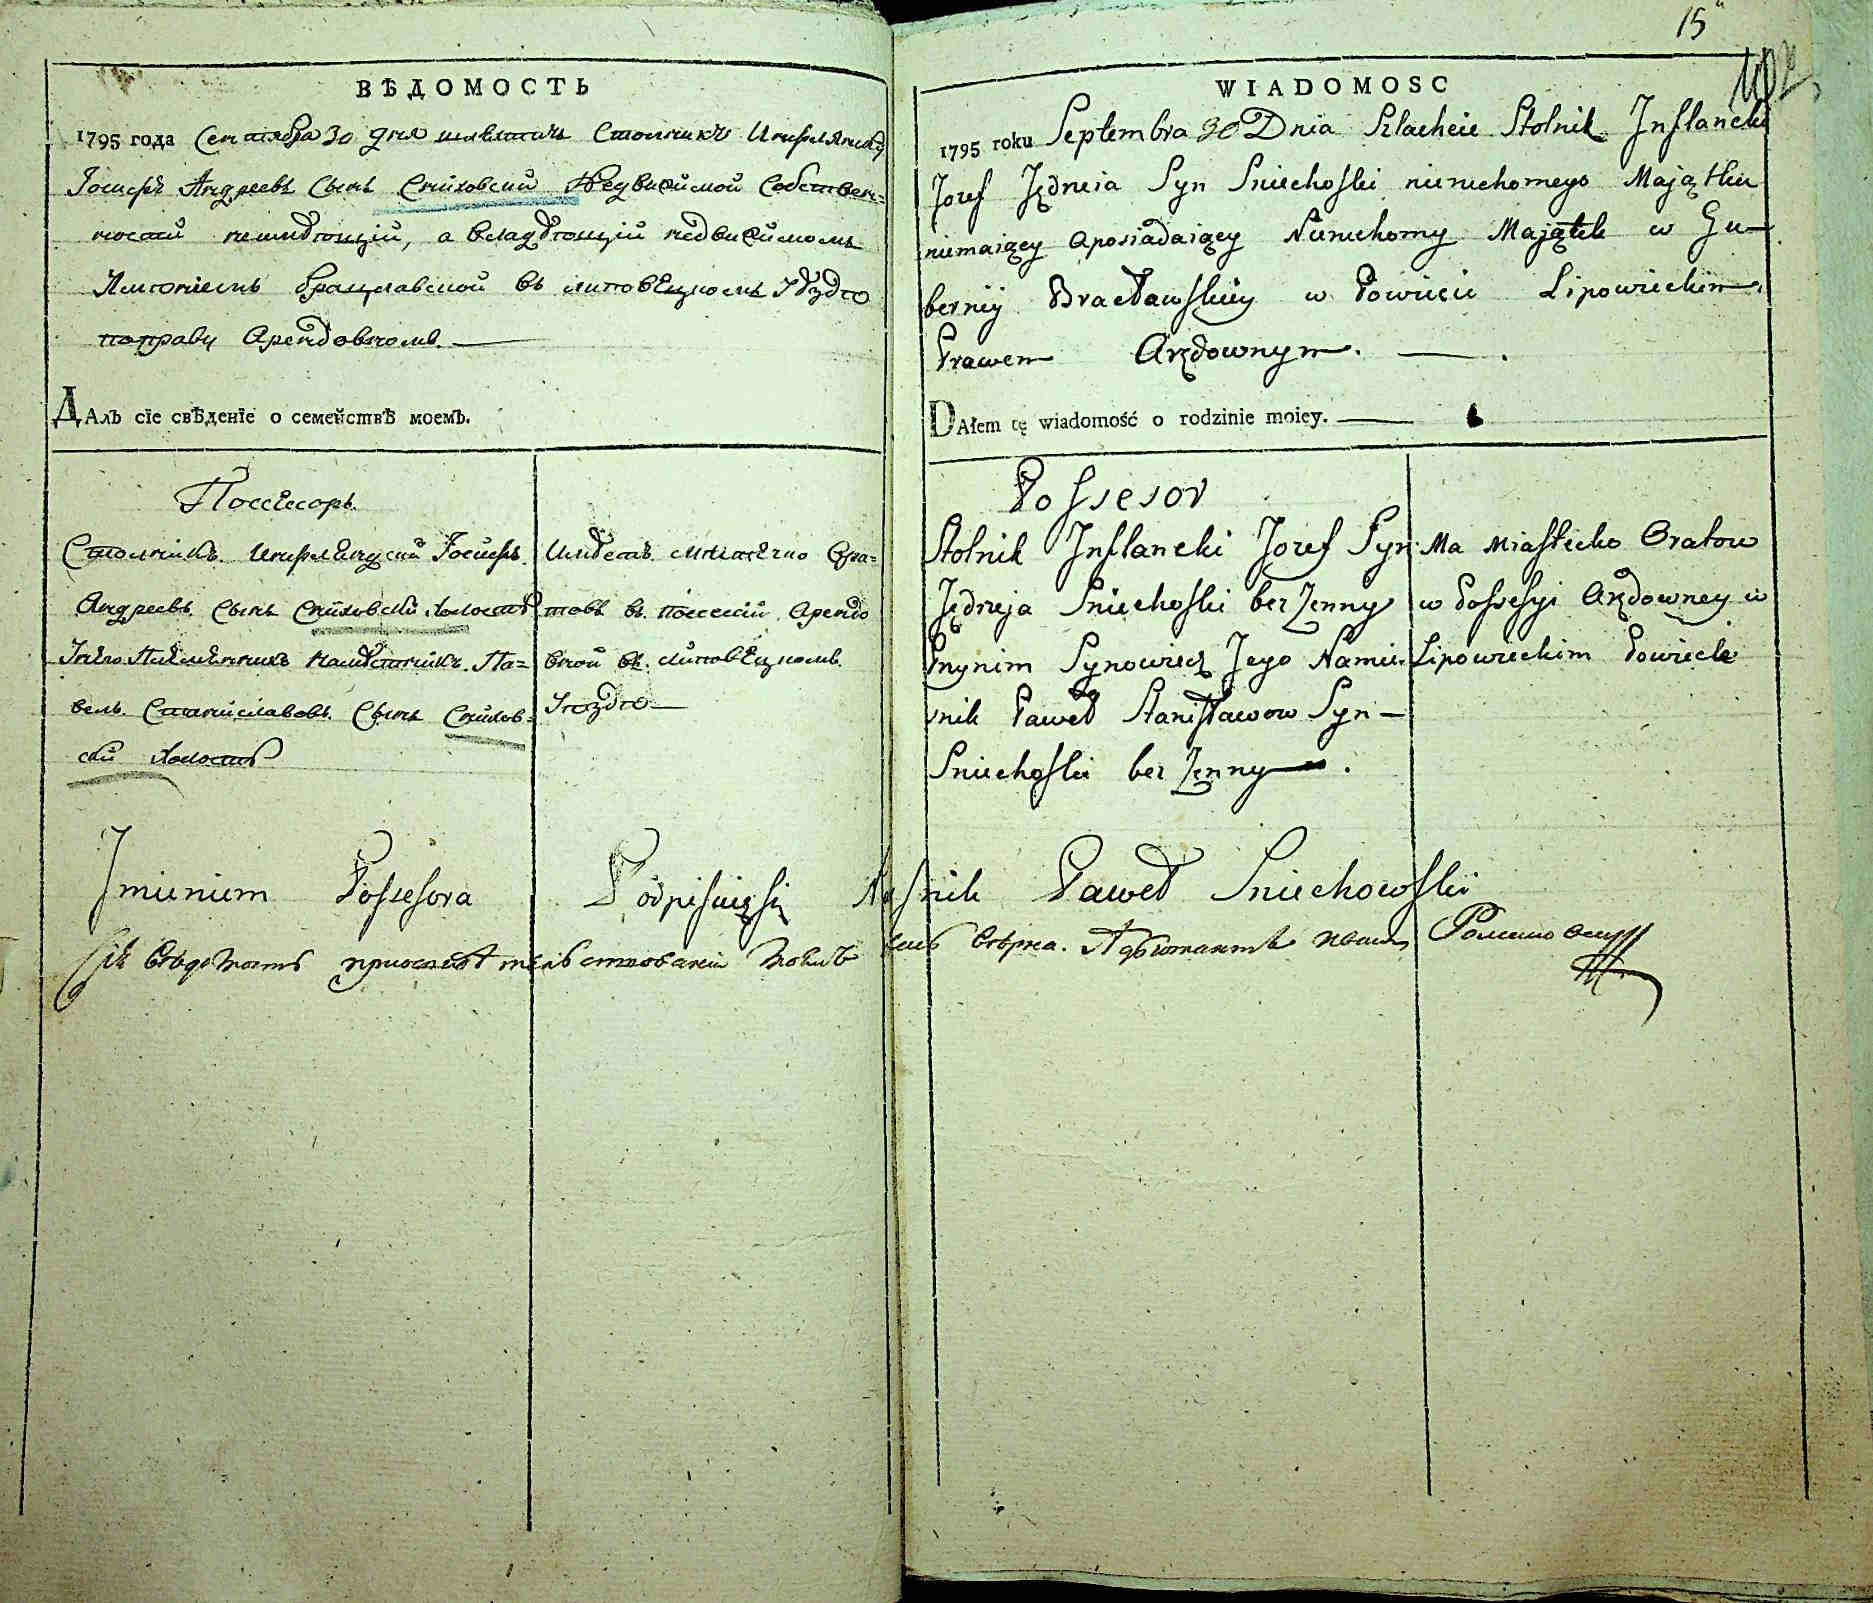 15
ВѢДОМОСТЬ
1795 года Сентября 30 дня шляхтичь Столникъ Инфлянцкий
Іосифъ Андреевъ Сынъ Снѣховский Недвижимой Собствен=
ности неимѣющій, а владѣющій недвижимомъ
Имѣнiемъ Брацлавской въ липовѣцкомъ Уѣздѣ
по праву Арендовномъ.
ДАлъ сїе свѣденїе о семействѣ моемъ.
Поссесоръ.
Столникъ Инфлянцкій Іосифъ
Андреевъ Сынъ Снѣховскій холостъ
Племянникъ намѣстникъ Па=
велъ Станиславовъ Сынъ Снѣхов=
скій холостъ
Имѣетъ мѣстечко Ора=
товъ въ поссесіи Арендо
вной въ липовѣцкомъ
Уѣздѣ
WIADOMOSC
1795 roku Septembra 30 Dnia Szlachcic Stolnik Inflancki
Jozef Jędrzeia Syn Sniechoski nieruchomego Maiątku
niemaiący aposiadaiący Nieruchomy Maiątek w Gu-
bernij Bracławskiey w Powiecie Lipowieckim
Prawem Arędownym.
DAłem tę wiadomość o rodzinie moiey.
Possesor
Stolnik Inflancki Jozef Syn
Jędrzeja Sniechoski bez Zenny
Przynim Synowiec Jego Namie-
snik Paweł Stanisławow Syn -
Sniechoski bez Zenny.
Ma Miasteczko Oratow
w Possesyi Arędowney w
Lipowieckim Powiecie
Jmieniem Possesora Podpisuięsię Namiesnik Paweł Sniechowski
Сія вѣдомость при освидѣтельствованіи вѣрна. Адъютантъ